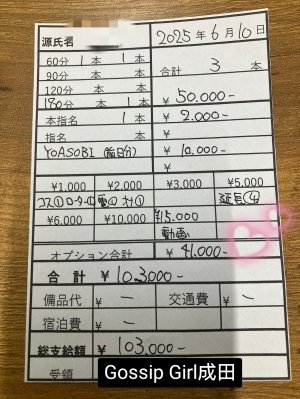 源氏名
2025年6月10日
60分 1本 1本
90分 本 本
120分 本 本
180分 1本 本
合計 3 本
¥ 50.000-
本指名 1本 ¥ 2.000-
指名 本 ¥
YOASOBI (前日分) ¥ 10.000-
¥
¥1,000 ¥2,000 ¥3,000 ¥5,000
コス① ローター① 電① オナ① 延長④
¥6,000 ¥10,000 ¥15.000
動画
オプション合計 ¥ 41.000-
合計 ¥ 103,000-
備品代 ¥ - 交通費 ¥ -
宿泊費 ¥ -
総支給額 ¥ 103.000-
受領
Gossip Girl成田